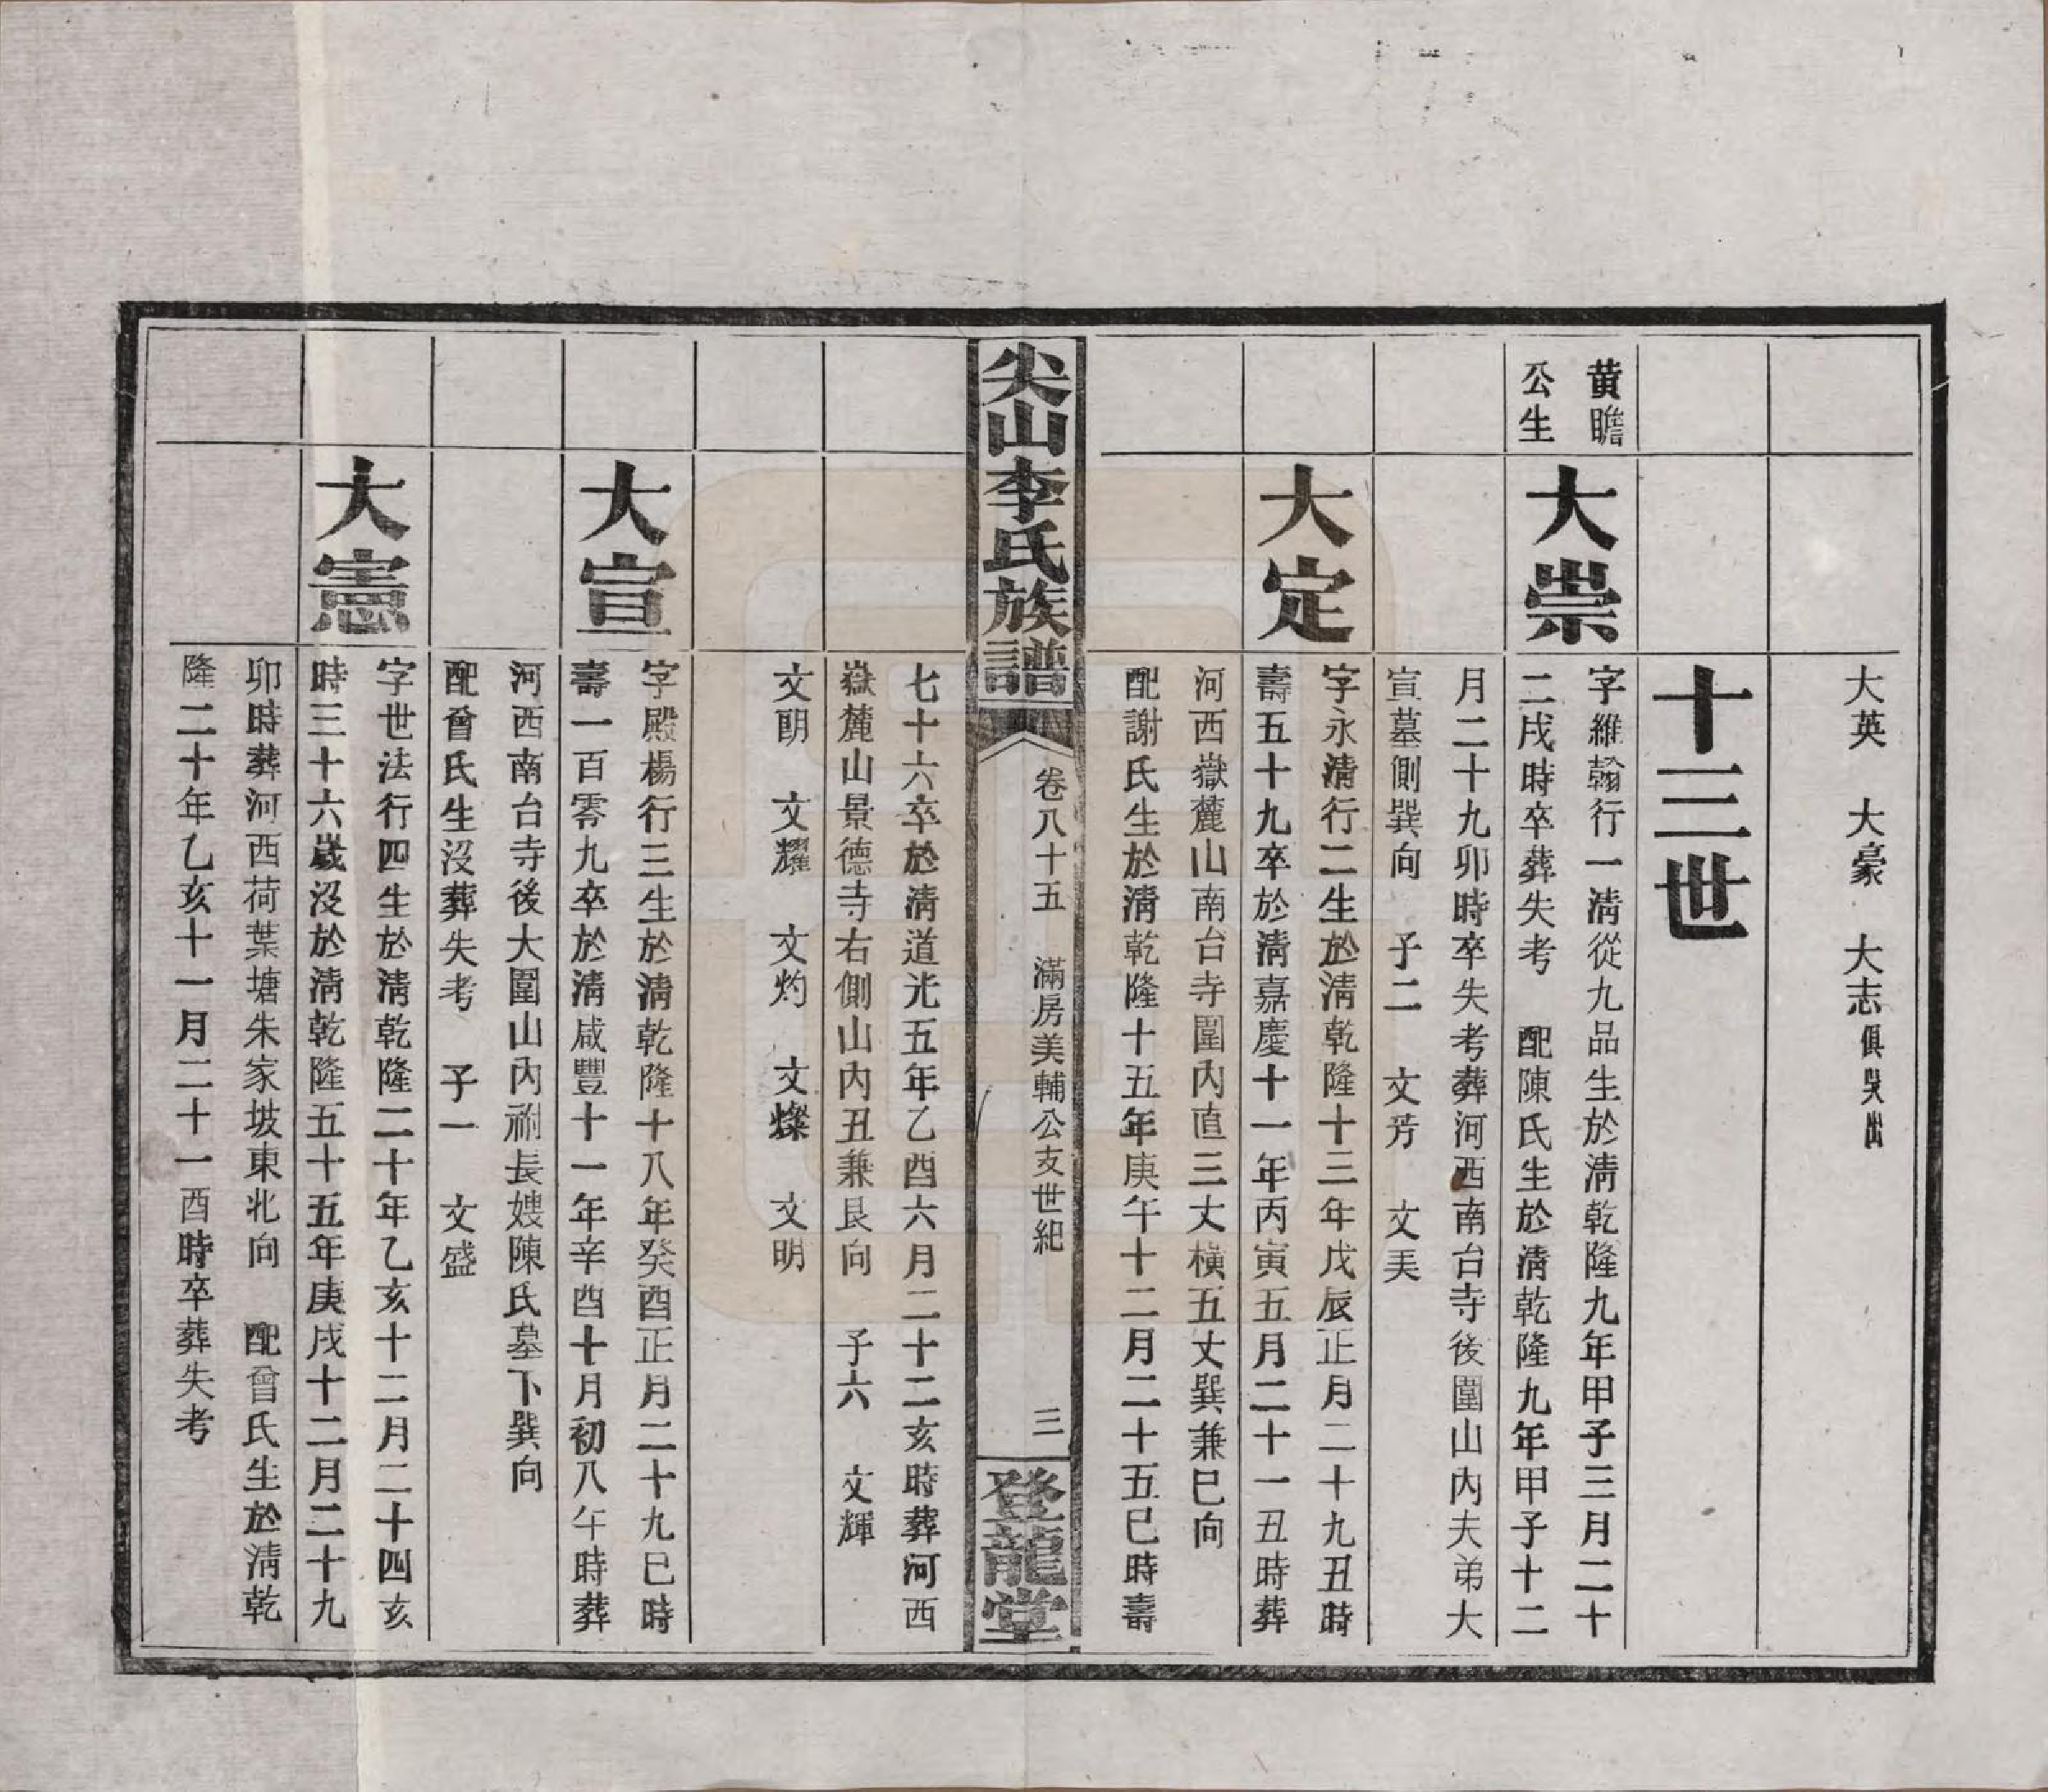 大英　大豪　大志俱吳出
十三世
黃瞻
公生
大崇
字維翰行一清從九品生於清乾隆九年甲子三月二十
二戌時卒葬失考　配陳氏生於清乾隆九年甲子十二
月二十九卯時卒失考葬河西南台寺後圍山內夫弟大
宣墓側巽向　子二　文芳　文美
大定
字永清行二生於清乾隆十三年戊辰正月二十九丑時
壽五十九卒於清嘉慶十一年丙寅五月二十一丑時葬
河西嶽麓山南台寺圍內直三丈橫五丈巽兼巳向
配謝氏生於清乾隆十五年庚午十二月二十五巳時壽
尖山李氏族譜
卷八十五　滿房美輔公支世紀
三
登龍堂
七十六卒於清道光五年乙酉六月二十二亥時葬河西
嶽麓山景德寺右側山內丑兼艮向　子六　文輝
文朗　文耀　文灼　文燦　文明
大宣
字殿楊行三生於清乾隆十八年癸酉正月二十九巳時
壽一百零九卒於清咸豐十一年辛酉十月初八午時葬
河西南台寺後大圍山內祔長嫂陳氏墓下巽向
配曾氏生沒葬失考　子一　文盛
大憲
字世法行四生於清乾隆二十年乙亥十二月二十四亥
時三十六歲沒於清乾隆五十五年庚戌十二月二十九
卯時葬河西荷葉塘朱家坡東北向　配曾氏生於清乾
隆二十年乙亥十一月二十一酉時卒葬失考